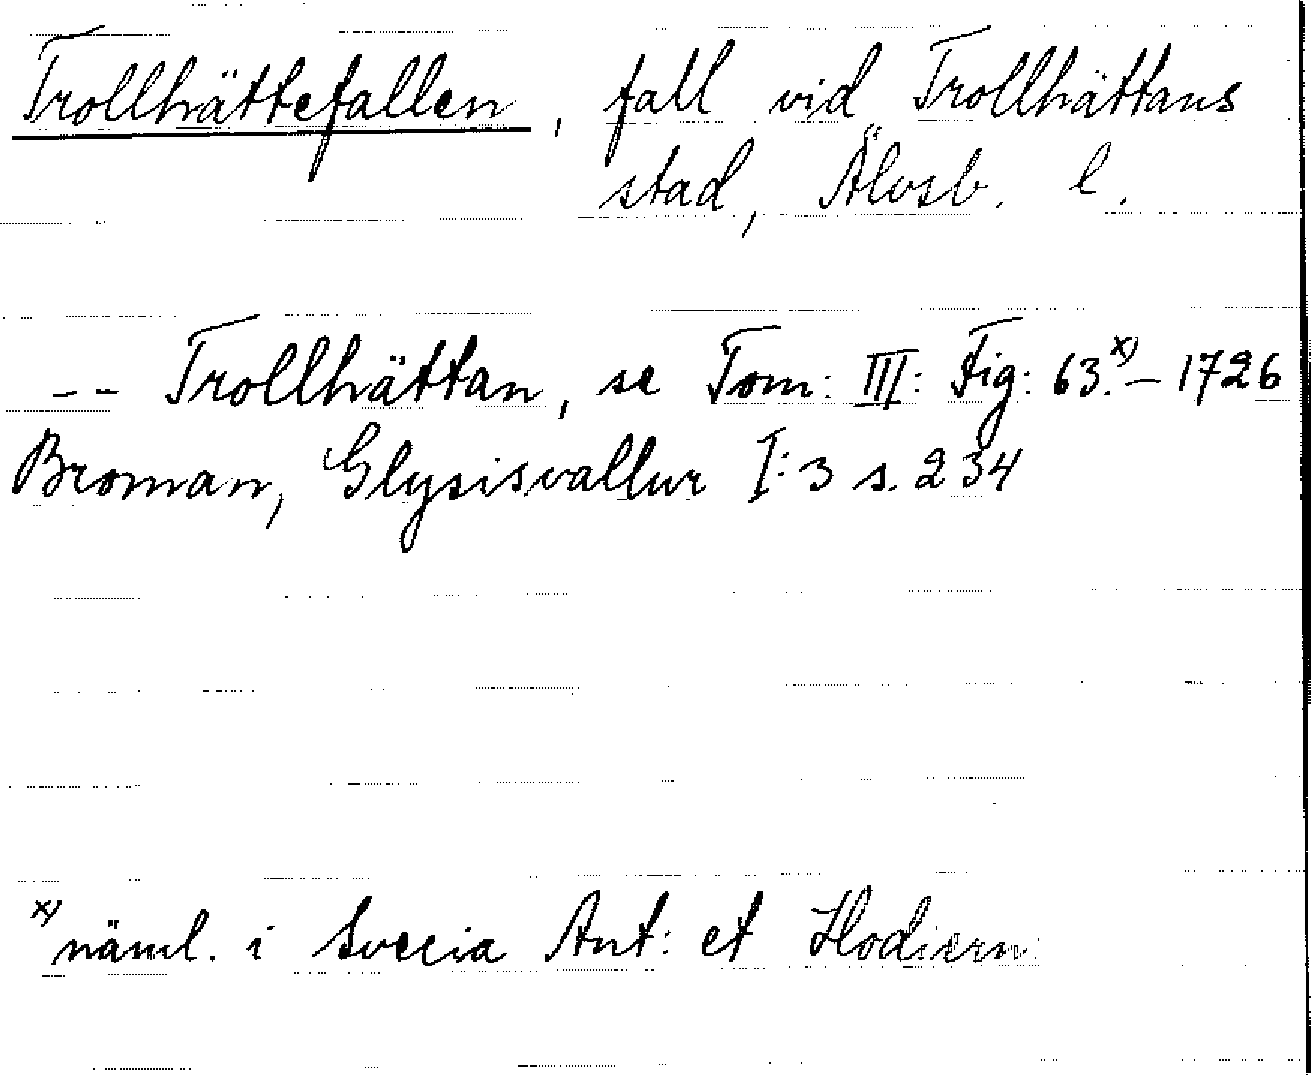 Trollhättefallen, fall vid Trollhättans
stad, Älvsb. l.
-- Trollhättan, se Tom: III: Fig: 63.x) – 1726
Broman, Glysisvallur I:3 s. 234
x) näml. i Svecia Ant: et Hodiern: